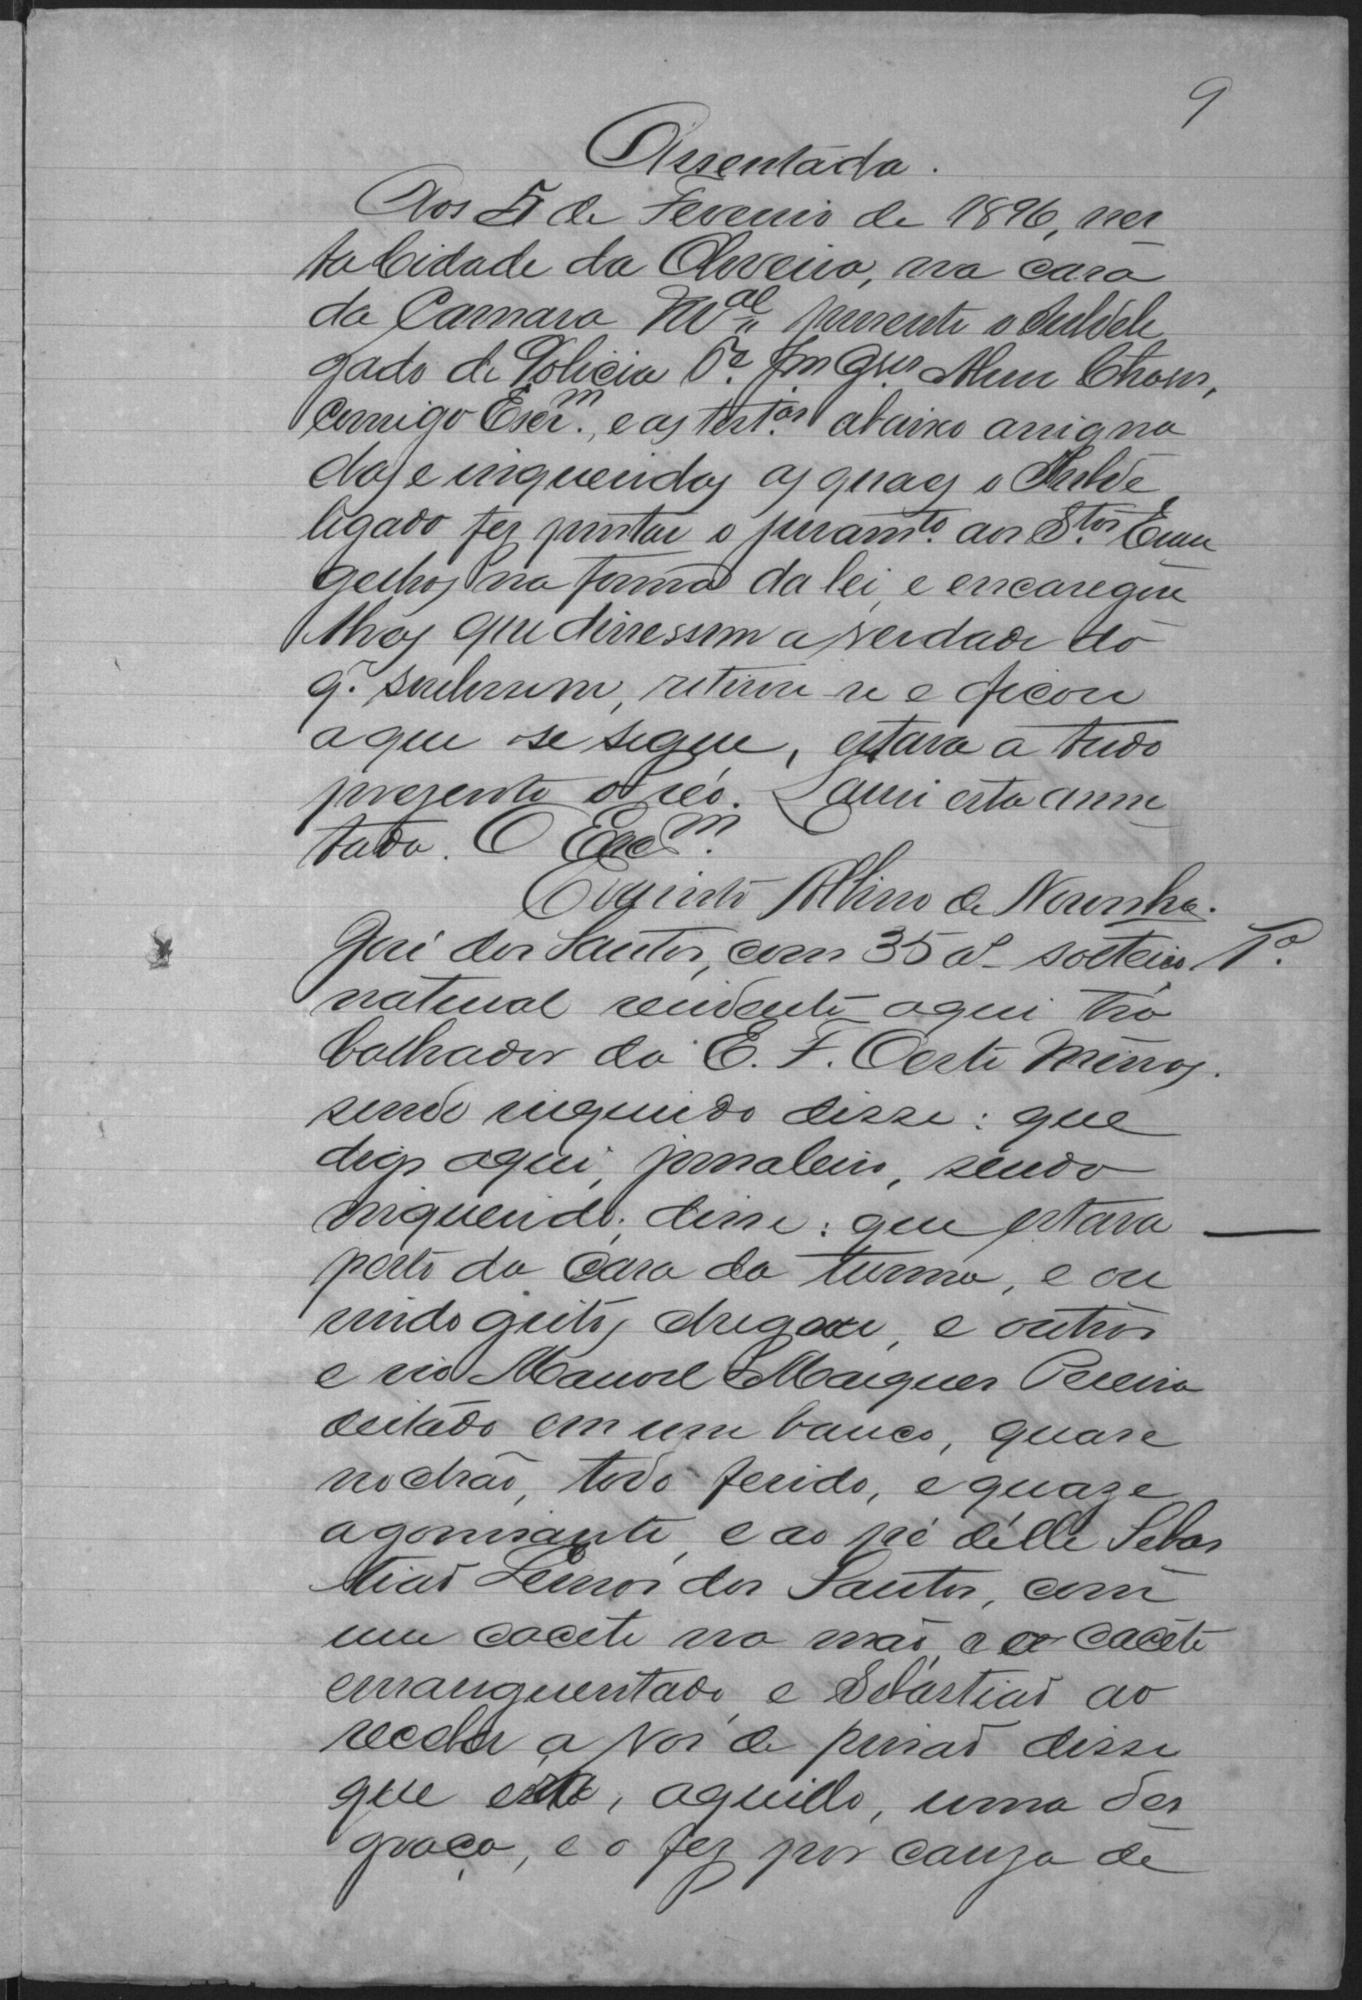 9
Assentada.
Aos 5 de Fevereiro de 1896, nes
ta Cidade da Oliveira, na casa
da Camara M.al presente o Subdele
gado de Policia
comigo Escr.m, e as test.as abaixo assigna
das e inqueridas as quaes o Subde
legado fez prestar o juram.to aos S.tos Evan
gelhos na forma da lei, e encaregou
lhes que dissessem a verdade do
q. soubessem, retirou se e ficou
a que se segue, estava a tudo
presente o reo. Lavrei esta assen
tada. O Escr.m
Albino de Noronha.
José dos Santos, com 35 a.s solteiro 1.a
natural residente aqui tra
balhador da E. F. Oeste Minas.
sendo inquerido disse: que
digo aqui, jornaleiro, sendo
inquerido; disse: que estava
perto da casa da turma, e ou
vindo gritos chegou, e outros
e vio Manoel Marques Pereira
deitado em um banco, quase
no chão, todo ferido, e quaze
agonisante, e ao pé délle Sebas
tião Lemos dos Santos, com
um cacete na mão, e o cacete
ensanguentado, e Sebastião ao
receber a vos de prisão disse
que era, aquillo, uma des
graça, e o fez por cauza de